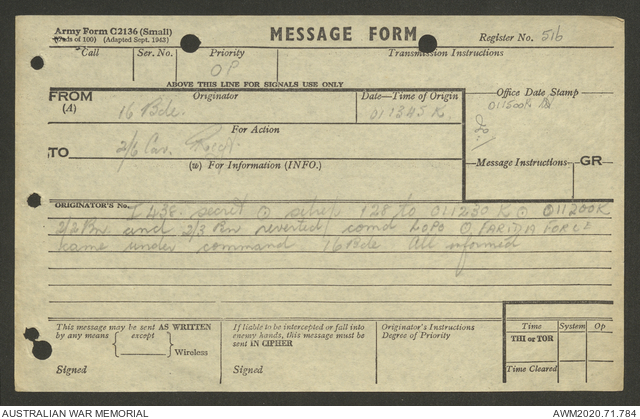 Army Form C2136 (Small)
(Pads of 100) (Adapted Sept. 1943)
MESSAGE FORM
Register No. 516
Call
Ser. No.
Priority
OP
Transmission Instructions
ABOVE THIS LINE FOR SIGNALS USE ONLY
FROM
(A)
Originator
16 Bde.
Date—Time of Origin
011345 K.
Office Date Stamp
011500K
For Action
TO
2/6 Cav. Regt.
(W) For Information (INFO.)
Message Instructions
GR
ORIGINATOR'S No.
I 438 secret ⊙ sitrep 128 to 011230 K ⊙ 011200K
2/2 Bn and 2/3 Bn reverted comd ⊙ FARIDA FORCE
came under command 16 Bde All informed
This message may be sent AS WRITTEN
by any means except
Wireless
Signed
If liable to be intercepted or fall into
enemy hands, this message must be
sent IN CIPHER
Signed
Originator's Instructions
Degree of Priority
Time
System
Op
THI or TOR
Time Cleared
AUSTRALIAN WAR MEMORIAL
AWM2020.71.784